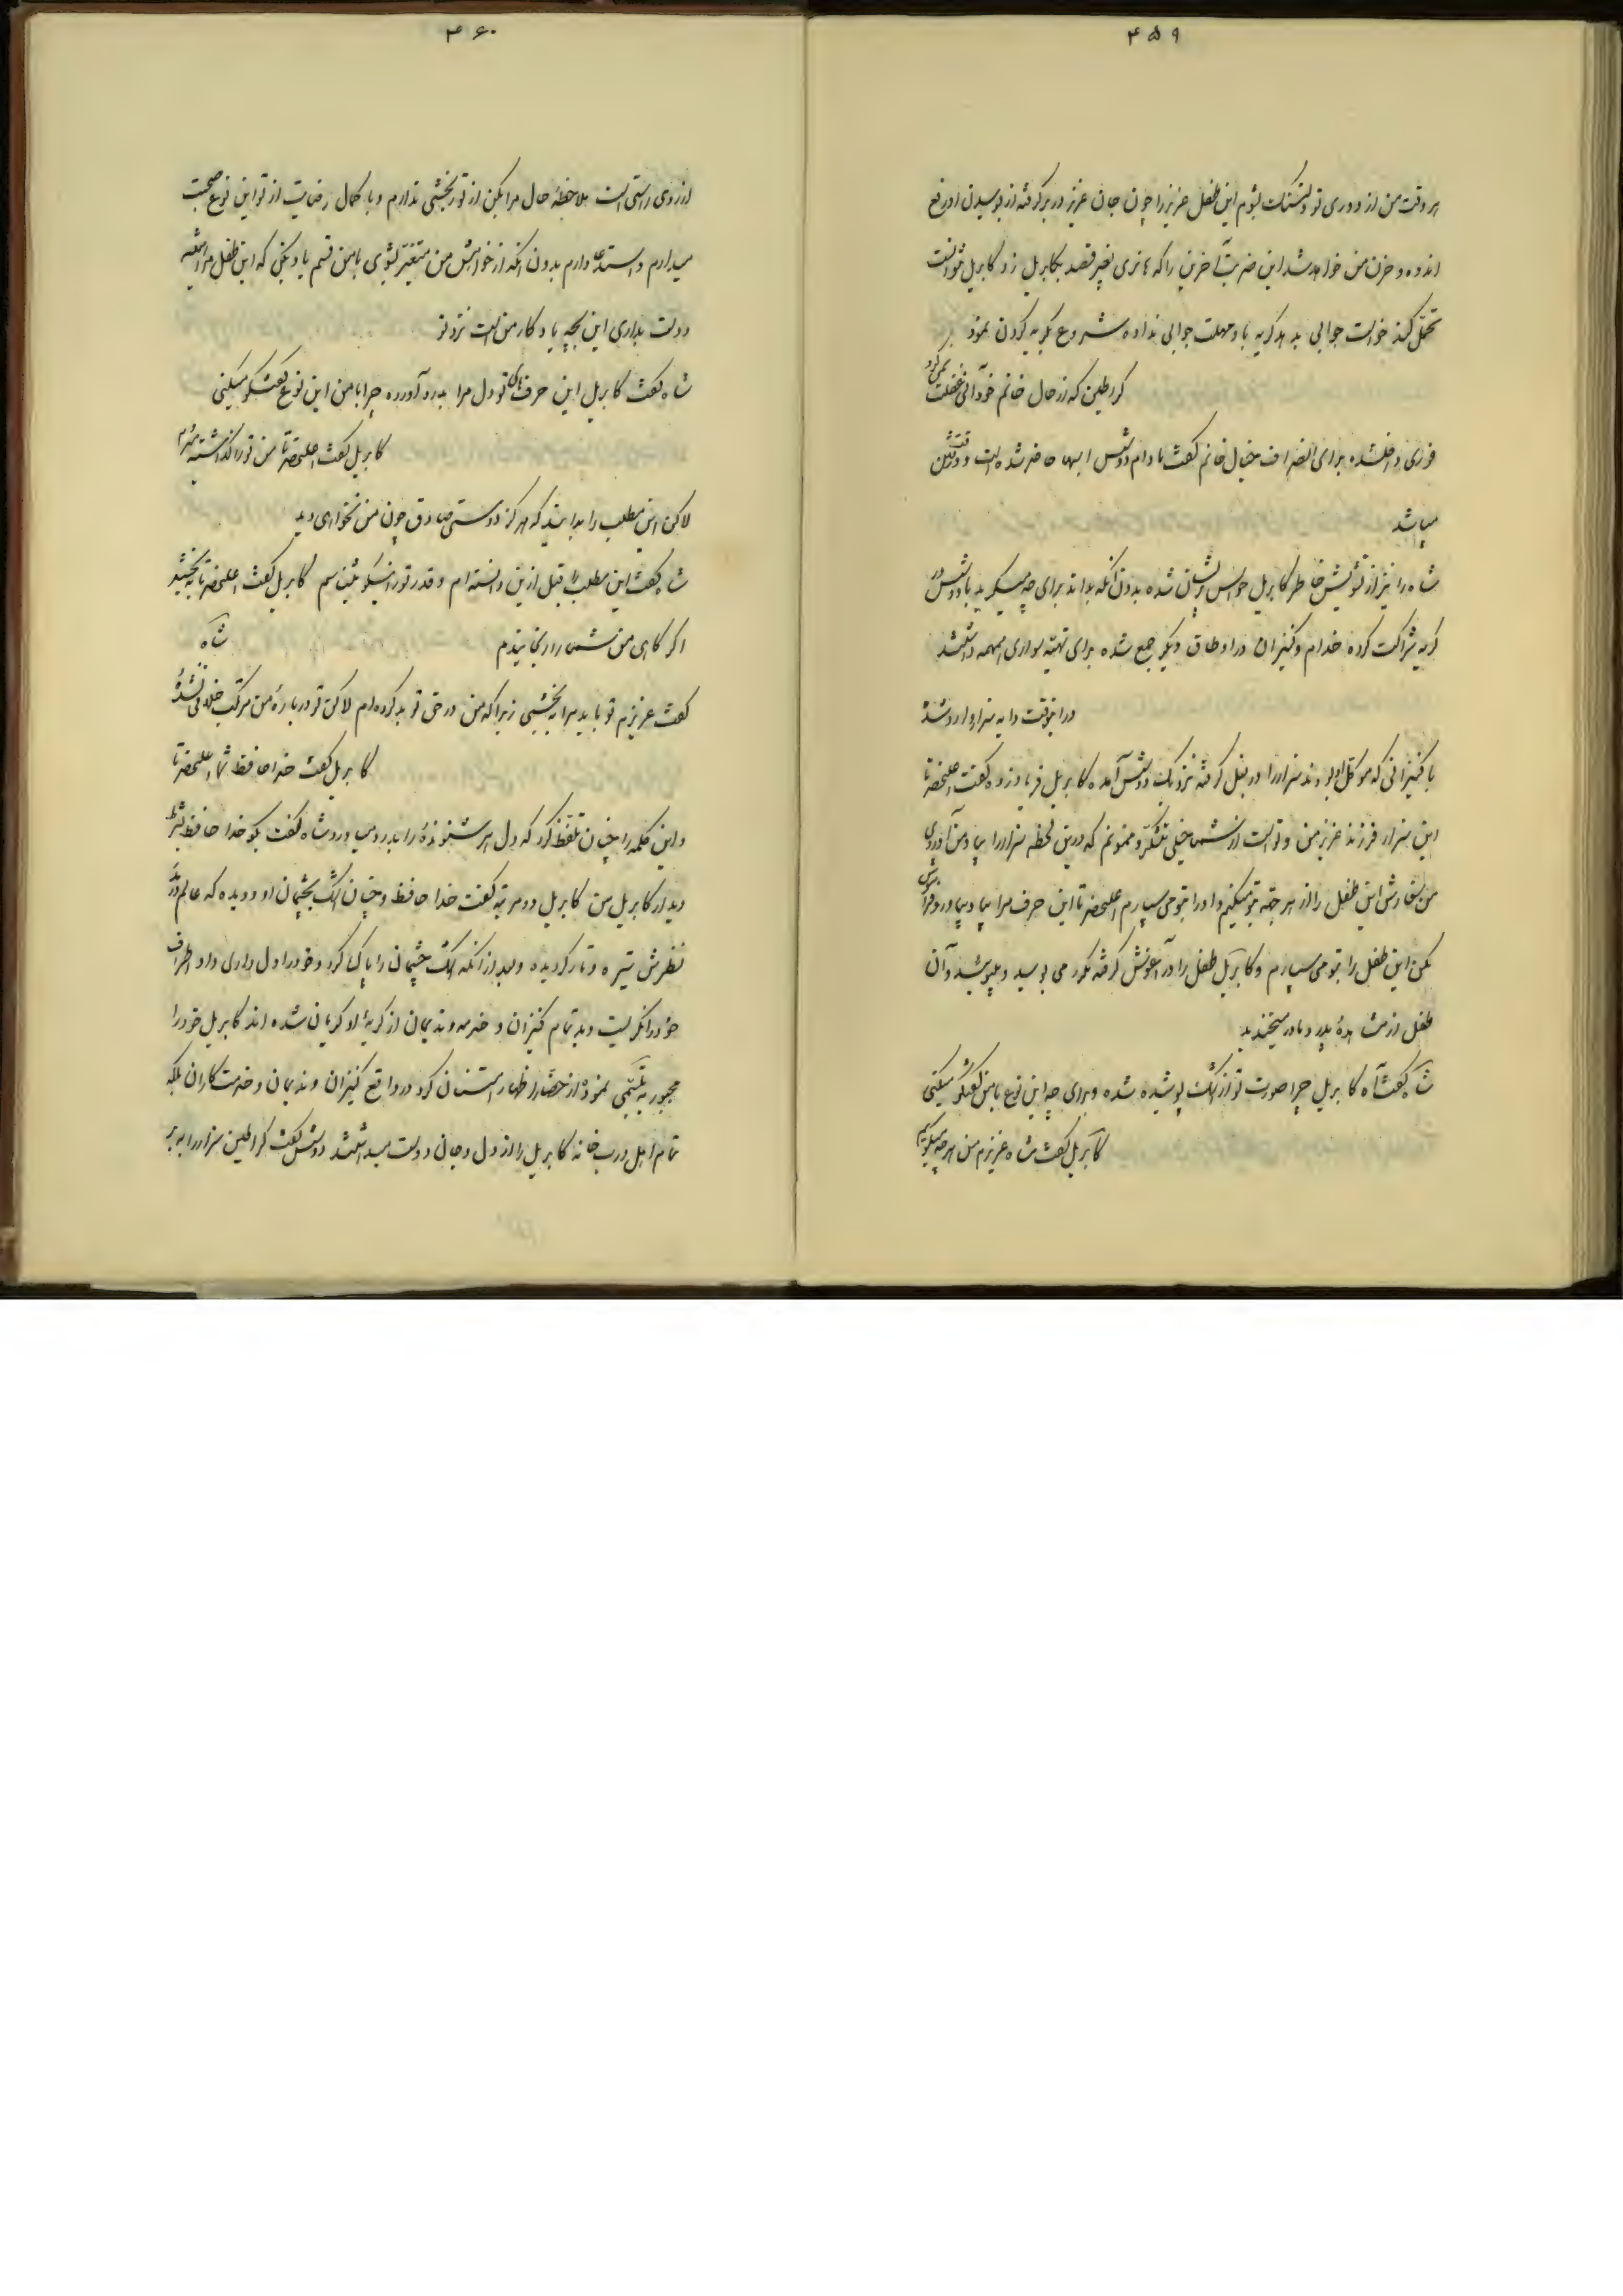 ۴۵۹
هر وقت من از دوری تو دلتنگ بشوم این طفل عزیز را چون جان عزیز در بر گرفته از بوسیدن او رفع
اندوه و حزن من خواهد شد این ضربت آخرین را که هانری بغیر قصد بکابریل زد کابریل نتوانست
تحمل کند خواست جوابی بدهد گریه باو مهلت جوابی نداده شروع بگریه کردن نمود
کراطین که از حال خانم خود آنی غفلت نمیکرد
فوری داخلشده برای انصراف خیال خانم گفت مادام دوشس اسبها حاضر شده است و وقت رفتن
میباشد
شاه را نیز از تشویش خاطر کابریل حواس پریشان شده بدون آنکه بداند برای چه میگرید با دوشس در
گریه شراکت کرده خدام و کنیزان در اوطاق دیگر جمع شده برای تهیه سواری همهمه داشتند
در اینوقت دایه سزار وارد شد
با کنیزانی که موکل او بودند سزار را در بغل گرفته نزدیک دوشس آمده کابریل فریاد زده گفت اعلیحضرتا
این سزار فرزند عزیز من و تو است از شما خیلی متشکر و ممنونم که درین لحظه سزار را بیاد من آوردی
من سفارش این طفل را از هر جهة بتو میکنم و او را بتو می سپارم اعلیحضرتا این حرف مرا بیاد بیاور و فراموش
مکن این طفل را بتو می سپارم و کابریل طفل را در آغوش گرفته مکرر می بوسید و میبوئید و آن
طفل از مشاهدهٔ پدر و مادر میخندید
شاه گفت آه کابریل چرا صورت تو از اشک پوشیده شده و برای چه این نوع با من گفتگو میکنی
کابریل گفت شاه عزیزم من هر چه میگویم
۴۶۰
از روی راستی است ملاحظهٔ حال مرا بکن از تو رنجشی ندارم و با کمال رضایت از تو این نوع صحبت
میدارم و استدعا دارم بدون آنکه از خواهش من متغیر بشوی با من قسم یاد بکنی که این طفل مرا همیشه
دوست بداری این بچه یادگار من است نزد تو
شاه گفت کابریل این حرف های تو دل مرا بدرد آورده چرا با من این نوع گفتگو میکنی
کابریل گفت اعلیحضرتا من تو را گذاشته میروم
لاکن این مطلب را بدانید که هرگز دوستی صادق چون من نخواهی دید
شاه گفت این مطلب را قبل ازین دانسته ام و قدر تو را نیکو میشناسم کابریل گفت اعلیحضرتا ببخشید
اگر گاهی من شما را رنجانیدم شاه
گفت عزیزم تو باید مرا ببخشی زیرا که من در حق تو بد کرده ام لاکن تو دربارهٔ من مرتکب خلافی نشدهٔ
کابریل گفت خدا حافظ شما اعلیحضرتا
و این کلمه را چنان تلفظ کرد که دل هر شنوندهٔ را بدرد میاورد شاه گفت بگو خدا حافظ بشرط
دیدار کابریل من کابریل دو مرتبه گفت خدا حافظ و چنان اشک بچشمان او دویده که عالم در
نظرش تیره و تار گردیده و بعد از آنکه اشک چشمان را پاک کرد و خود را دل داری داد اطراف
خود را نگریست دید تمام کنیزان و خدمه و ندیمان از گریهٔ او گریان شده اند کابریل خود را
مجبور به تبسمی نموده از حضار اظهار امتنان کرد در واقع کنیزان و ندیمان و خدمت کاران بلکه
تمام اهل درب خانه کابریل را از دل و جان دوست میداشتند دوشس گفت کراطین سزار را به بر